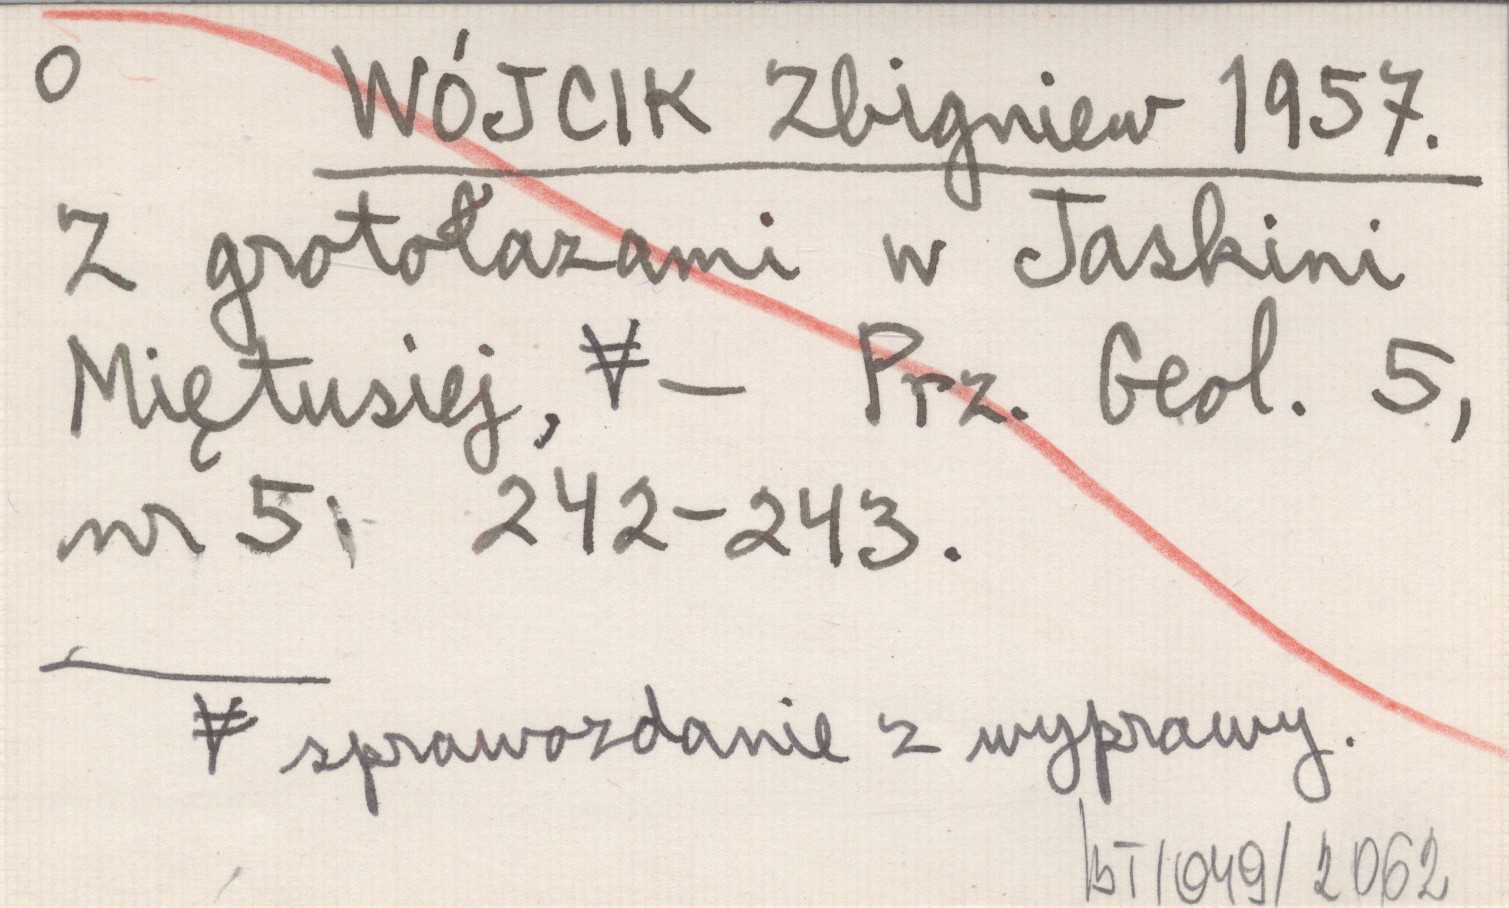 O WÓJCIK Zbigniew 1957.
Z grotołazami w Jaskini
Miętusiej, ¥ — Prz. Geol. 5,
nr 5, 242-243.
¥ sprawozdanie z wyprawy.
BT/049/2062